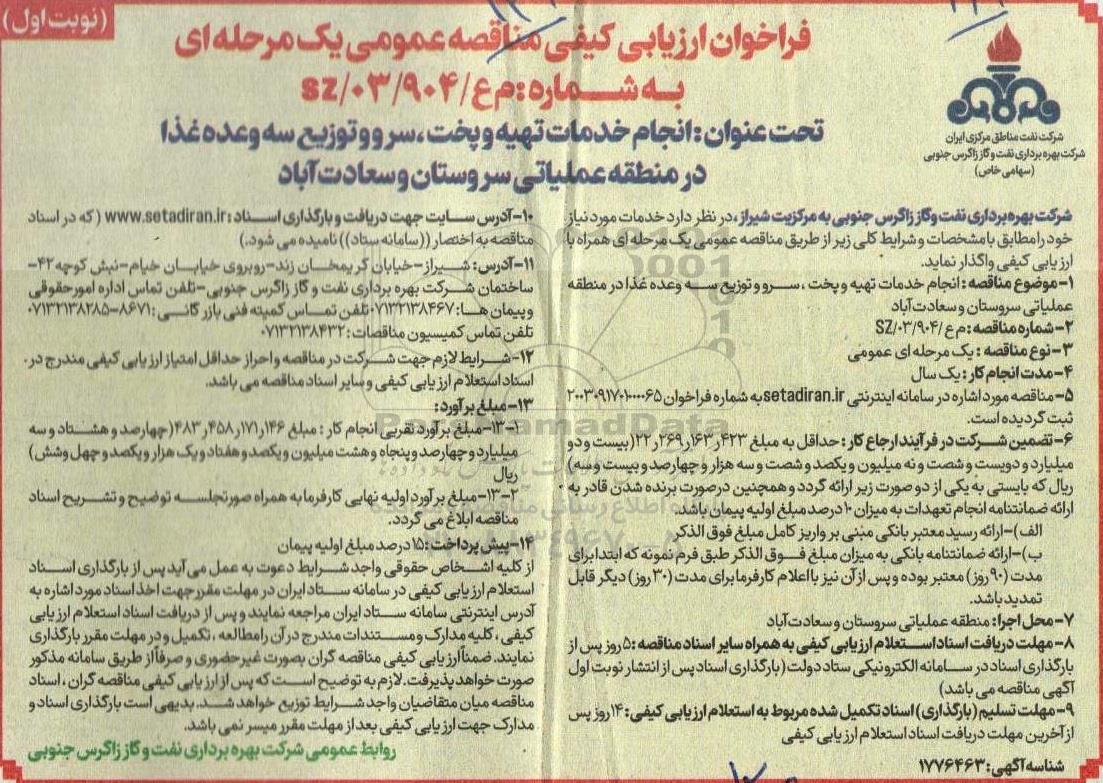 (نوبت اول)
فراخوان ارزیابی کیفی مناقصه عمومی یک مرحله ای
به شماره: م ع/SZ/۰۳/۹۰۴
تحت عنوان: انجام خدمات تهیه و پخت، سرو و توزیع سه وعده غذا
در منطقه عملیاتی سروستان و سعادت آباد
شرکت نفت مناطق مرکزی ایران
شرکت بهره برداری نفت و گاز زاگرس جنوبی
(سهامی خاص)
شرکت بهره برداری نفت و گاز زاگرس جنوبی به مرکزیت شیراز، در نظر دارد خدمات مورد نیاز
خود را مطابق با مشخصات و شرایط کلی زیر از طریق مناقصه عمومی یک مرحله ای همراه با
ارزیابی کیفی واگذار نماید.
۱- موضوع مناقصه: انجام خدمات تهیه و پخت، سرو و توزیع سه وعده غذا در منطقه
عملیاتی سروستان و سعادت آباد
۲- شماره مناقصه: م ع/SZ/۰۳/۹۰۴
۳- نوع مناقصه: یک مرحله ای عمومی
۴- مدت انجام کار: یک سال
۵- مناقصه مورد اشاره در سامانه اینترنتی setadiran.ir به شماره فراخوان ۲۰۰۳۰۹۱۷۰۱۰۰۰۰۶۵
ثبت گردیده است.
۶- تضمین شرکت در فرآیند ارجاع کار: حداقل به مبلغ ۲۲٫۲۶۹٫۱۶۳٫۴۲۳ (بیست و دو
میلیارد و دویست و شصت و نه میلیون و یکصد و شصت و سه هزار و چهارصد و بیست و سه)
ریال که بایستی به یکی از دو صورت زیر ارائه گردد و همچنین در صورت برنده شدن قادر به
ارائه ضمانتنامه انجام تعهدات به میزان ۱۰ درصد مبلغ اولیه پیمان باشد.
الف)- ارائه رسید معتبر بانکی مبنی بر واریز کامل مبلغ فوق الذکر
ب)- ارائه ضمانتنامه بانکی به میزان مبلغ فوق الذکر طبق فرم نمونه که ابتدا برای
مدت (۹۰ روز) معتبر بوده و پس از آن نیز با اعلام کارفرما برای مدت (۳۰ روز) دیگر قابل
تمدید باشد.
۷- محل اجرا: منطقه عملیاتی سروستان و سعادت آباد
۸- مهلت دریافت اسناد استعلام ارزیابی کیفی به همراه سایر اسناد مناقصه: ۵ روز پس از
بارگذاری اسناد در سامانه الکترونیکی ستاد دولت (بارگذاری اسناد پس از انتشار نوبت اول
آگهی مناقصه می باشد)
۹- مهلت تسلیم (بارگذاری) اسناد تکمیل شده مربوط به استعلام ارزیابی کیفی: ۱۴ روز پس
از آخرین مهلت دریافت اسناد استعلام ارزیابی کیفی
شناسه آگهی: ۱۷۷۶۴۶۳
۱۰- آدرس سایت جهت دریافت و بارگذاری اسناد: www.setadiran.ir (که در اسناد
مناقصه به اختصار ((سامانه ستاد)) نامیده می شود.)
۱۱- آدرس: شیراز- خیابان کریمخان زند- روبروی خیابان خیام- نبش کوچه ۴۲-
ساختمان شرکت بهره برداری نفت و گاز زاگرس جنوبی- تلفن تماس اداره امور حقوقی
و پیمان ها: ۰۷۱۳۲۱۳۸۴۶۷ تلفن تماس کمیته فنی بازرگانی: ۸۶۷۱-۰۷۱۳۲۱۳۸۲۸۵
تلفن تماس کمیسیون مناقصات: ۰۷۱۳۲۱۳۸۴۳۲
۱۲- شرایط لازم جهت شرکت در مناقصه و احراز حداقل امتیاز ارزیابی کیفی مندرج در
اسناد استعلام ارزیابی کیفی و سایر اسناد مناقصه می باشد.
۱۳- مبلغ برآورد:
۱-۱۳- مبلغ برآورد تقریبی انجام کار: مبلغ ۴۸۳٫۴۵۸٫۱۷۱٫۱۴۶ (چهارصد و هشتاد و سه
میلیارد و چهارصد و پنجاه و هشت میلیون و یکصد و هفتاد و یک هزار و یکصد و چهل و شش)
ریال
۲-۱۳- مبلغ برآورد اولیه نهایی کارفرما به همراه صورتجلسه توضیح و تشریح اسناد
مناقصه ابلاغ می گردد.
۱۴- پیش پرداخت: ۱۵ درصد مبلغ اولیه پیمان
از کلیه اشخاص حقوقی واجد شرایط دعوت به عمل می آید پس از بارگذاری اسناد
استعلام ارزیابی کیفی در سامانه ستاد ایران در مهلت مقرر جهت اخذ اسناد مورد اشاره به
آدرس اینترنتی سامانه ستاد ایران مراجعه نمایند و پس از دریافت اسناد استعلام ارزیابی
کیفی، کلیه مدارک و مستندات مندرج در آن را مطالعه، تکمیل و در مهلت مقرر بارگذاری
نمایند. ضمناً ارزیابی کیفی مناقصه گران بصورت غیر حضوری و صرفاً از طریق سامانه مذکور
صورت خواهد پذیرفت. لازم به توضیح است که پس از ارزیابی کیفی مناقصه گران، اسناد
مناقصه میان متقاضیان واجد شرایط توزیع خواهد شد. بدیهی است بارگذاری اسناد و
مدارک جهت ارزیابی کیفی بعد از مهلت مقرر میسر نمی باشد.
روابط عمومی شرکت بهره برداری نفت و گاز زاگرس جنوبی